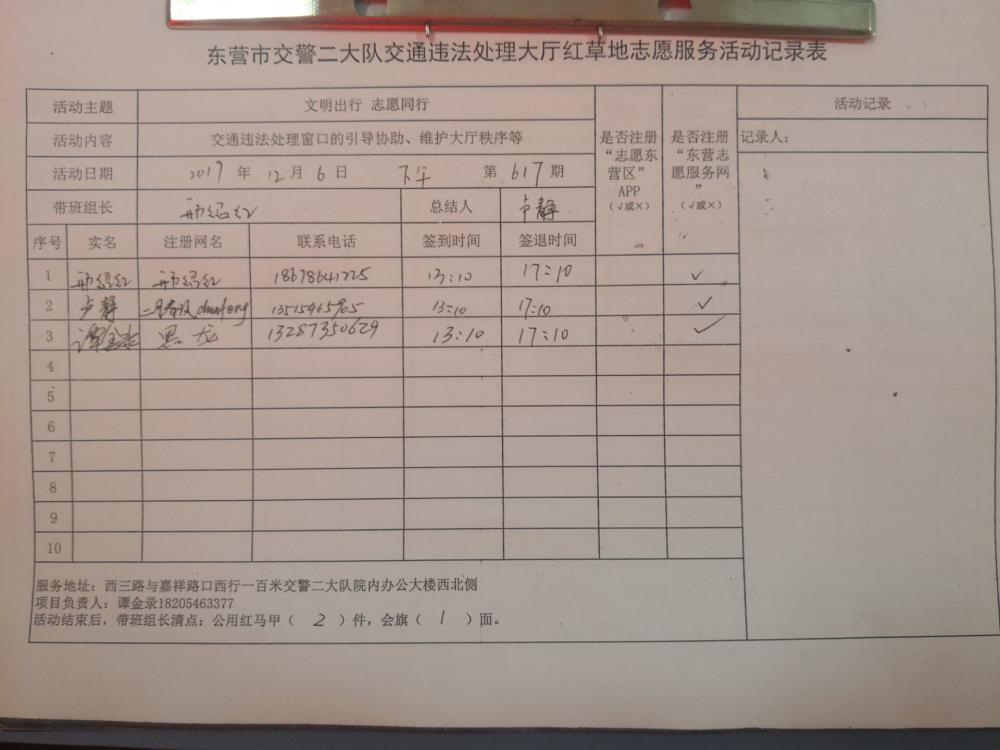 东营市交警二大队交通违法处理大厅红草地志愿服务活动记录表
活动主题 文明出行 志愿同行
活动内容 交通违法处理窗口的引导协助、维护大厅秩序等
活动日期 2017 年 12 月 6 日 下午 第 617 期
带班组长 邢绍红 总结人 卢静
是否注册“志愿东营区”APP（√或×）
是否注册“东营志愿服务网”（√或×）
活动记录
记录人：
序号 实名 注册网名 联系电话 签到时间 签退时间
1 邢绍红 邢绍红 18678641225 13:10 17:10 ✓
2 卢静 13515465905 13:10 17:10 ✓
3 谭金录 黑龙 13287350629 13:10 17:10 ✓
4
5
6
7
8
9
10
服务地址：西三路与嘉祥路口西行一百米交警二大队院内办公大楼西北侧
项目负责人：谭金录18205463377
活动结束后，带班组长清点：公用红马甲（ 2 ）件，会旗（ 1 ）面。